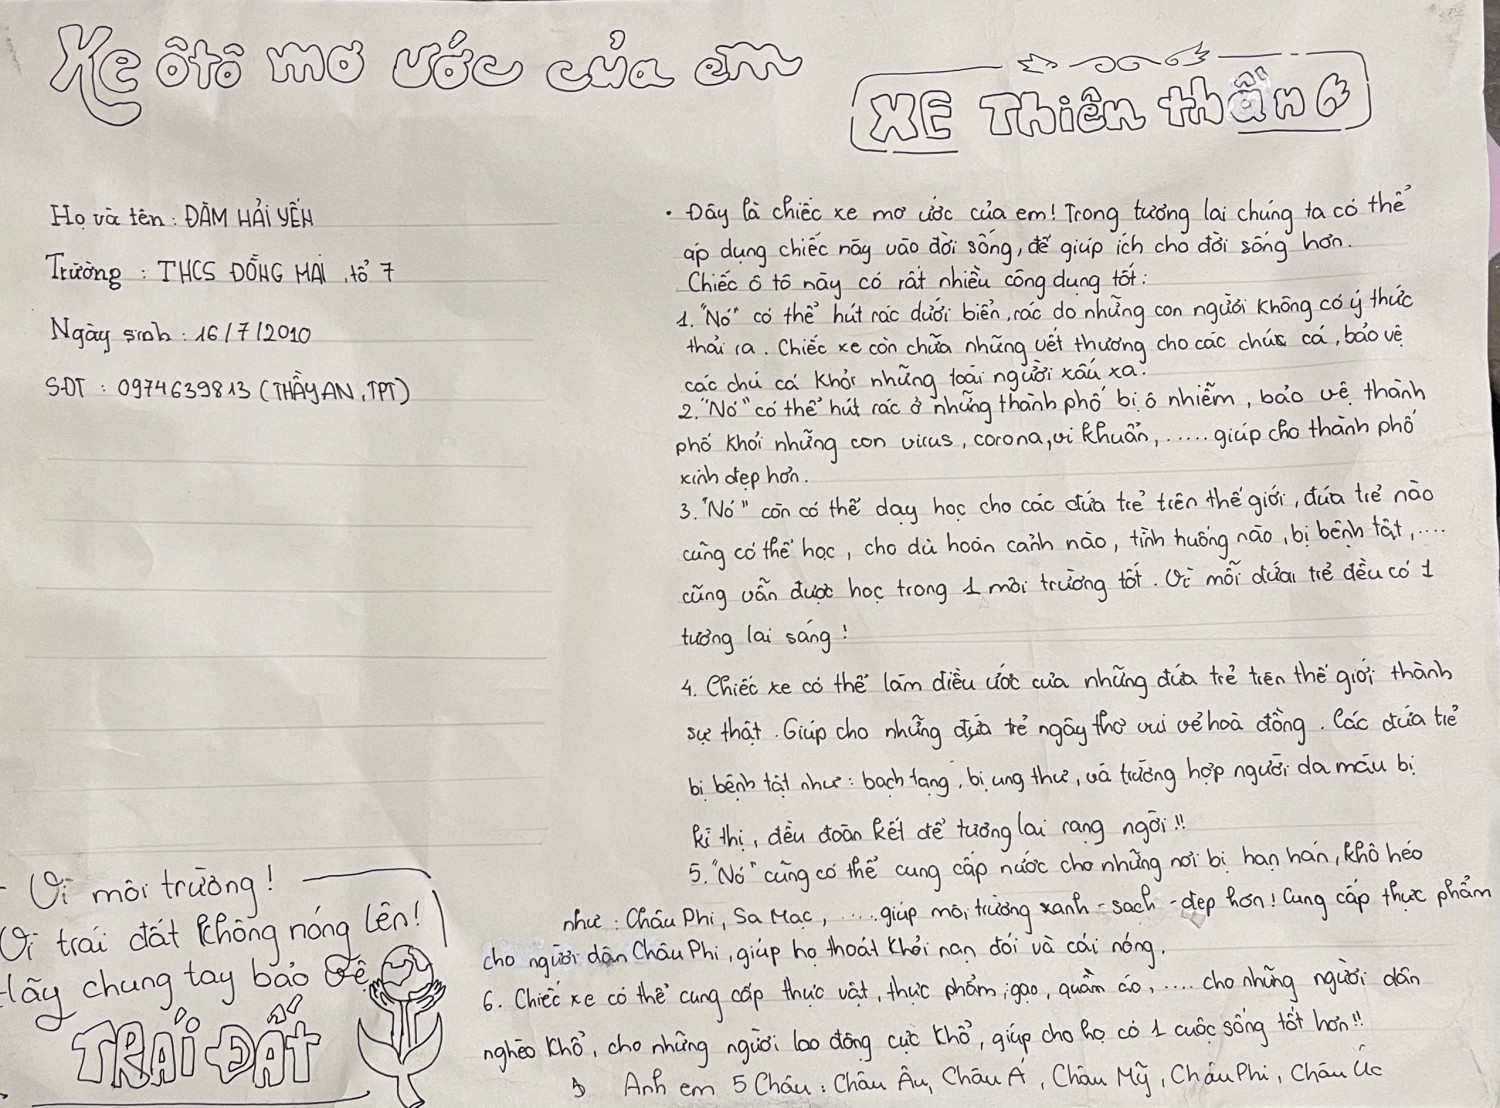 Xe ôtô mơ ước của em
XE Thiên thần
Họ và tên : ĐÀM HẢI YẾN
Trường : THCS ĐỒNG MAI , tổ 7
Ngày sinh : 16/7/2010
SĐT : 0974639813 (THẦY AN, TPT)
• Đây là chiếc xe mơ ước của em! Trong tương lai chúng ta có thể
áp dụng chiếc này vào đời sống, để giúp ích cho đời sống hơn.
Chiếc ô tô này có rất nhiều công dụng tốt :
1. "Nó" có thể hút rác dưới biển, rác do những con người không có ý thức
thải ra. Chiếc xe còn chữa những vết thương cho các chú cá, bảo vệ
các chú cá khỏi những loài người xấu xa!
2. "Nó" có thể hút rác ở những thành phố bị ô nhiễm, bảo vệ thành
phố khỏi những con virus, corona, vi khuẩn, ..... giúp cho thành phố
xinh đẹp hơn.
3. "Nó" còn có thể dạy học cho các đứa trẻ trên thế giới, đứa trẻ nào
cũng có thể học, cho dù hoàn cảnh nào, tình huống nào, bị bệnh tật, ....
cũng vẫn được học trong 1 môi trường tốt. Vì mỗi đứa trẻ đều có 1
tương lai sáng!
4. Chiếc xe có thể làm điều ước của những đứa trẻ trên thế giới thành
sự thật. Giúp cho những đứa trẻ ngây thơ vui vẻ hoà đồng. Các đứa trẻ
bị bệnh tật như : bạch tạng, bị ung thư, và trường hợp người da màu bị
kì thị, đều đoàn kết để tương lai rạng ngời!!
5. "Nó" cũng có thể cung cấp nước cho những nơi bị hạn hán, khô héo
như : Châu Phi, Sa Mạc, ..... giúp môi trường xanh - sạch - đẹp hơn! Cung cấp thực phẩm
cho người dân Châu Phi, giúp họ thoát khỏi nạn đói và cái nóng.
6. Chiếc xe có thể cung cấp thực vật, thực phẩm, gạo, quần áo, .... cho những người dân
nghèo khổ, cho những người lao động cực khổ, giúp cho họ có 1 cuộc sống tốt hơn!!
Anh em 5 Châu : Châu Âu, Châu Á, Châu Mỹ, Châu Phi, Châu Úc
Vì môi trường!
Vì trái đất không nóng lên!
Hãy chung tay bảo vệ
TRÁI ĐẤT